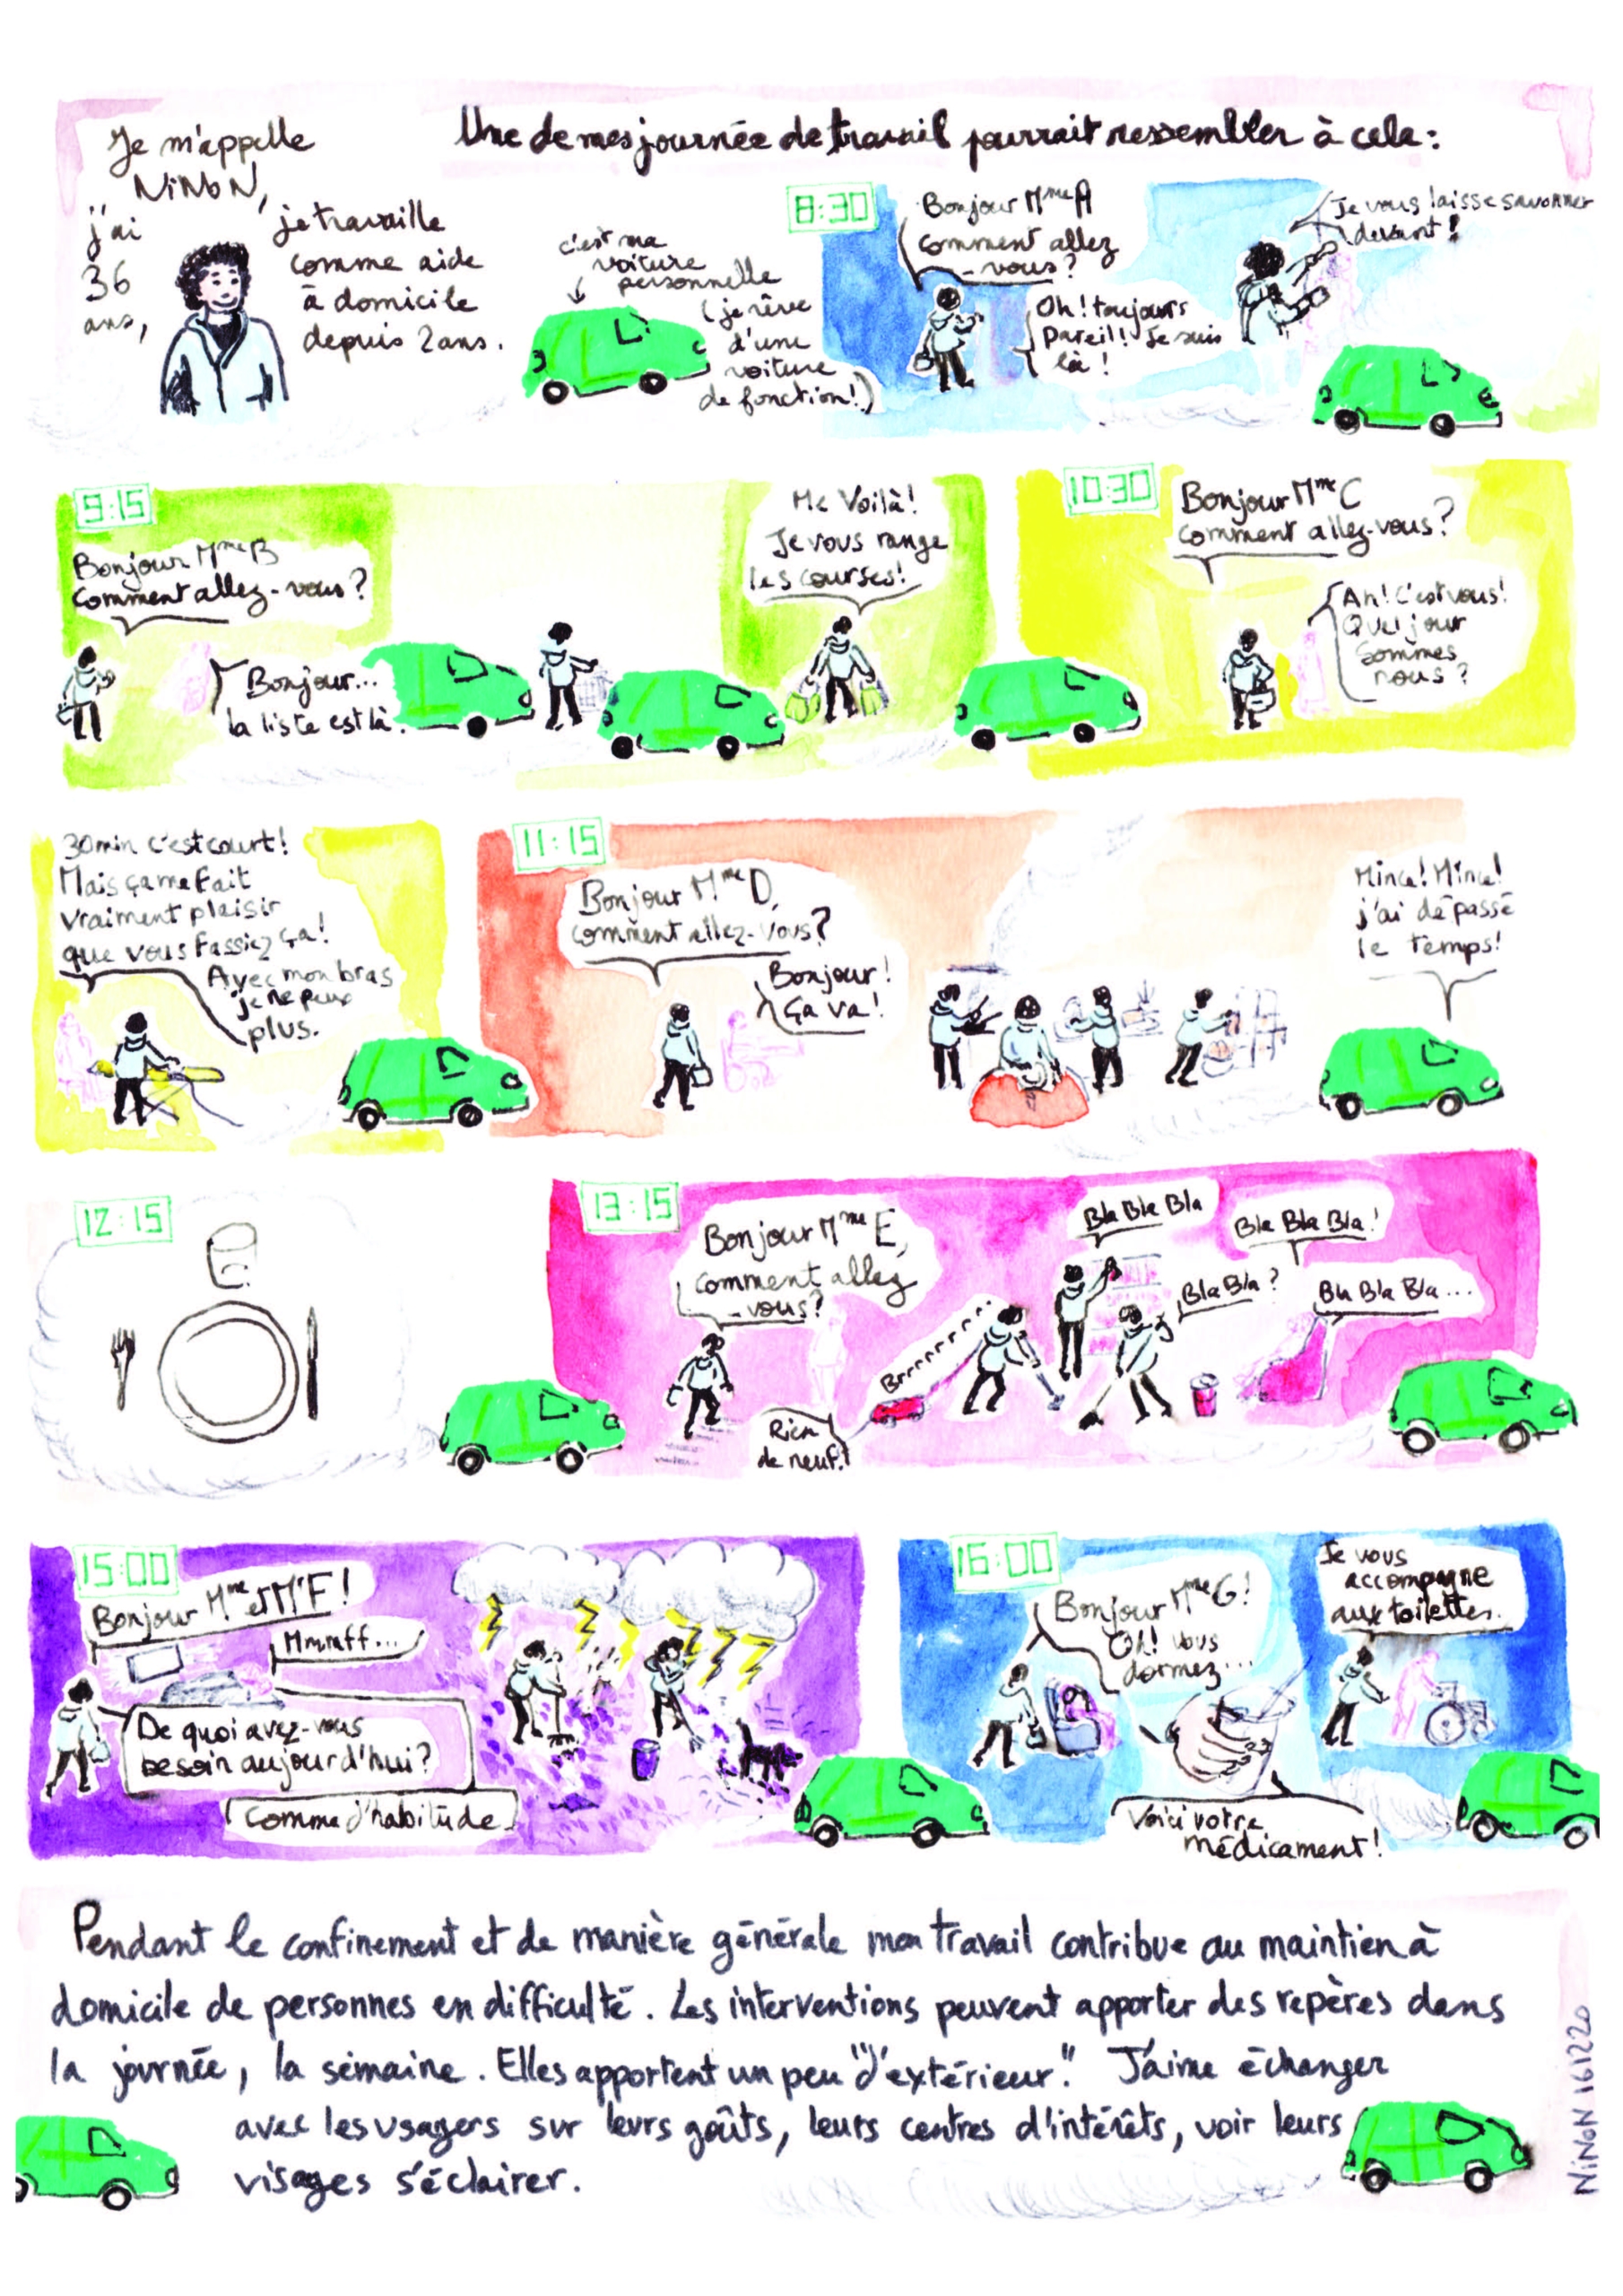 Je m'appelle
NiNoN,
j'ai
36
ans,
je travaille
comme aide
à domicile
depuis 2 ans.
Une de mes journée de travail pourrait ressembler à cela :
c'est ma
voiture
personnelle
(je rêve
d'une
voiture
de fonction!)
8:30
Bonjour Mme A
comment allez
-vous?
Oh! toujours
pareil! Je suis
là!
Je vous laisse savonner
devant!
9:15
Bonjour Mme B
Comment allez-vous?
Bonjour...
la liste est là.
Me Voilà!
Je vous range
les courses!
10:30
Bonjour Mme C
Comment allez-vous?
Ah! C'est vous!
Quel jour
sommes
nous?
30min c'est court!
Mais ça me fait
vraiment plaisir
que vous fassiez ça!
Avec mon bras
je ne peux
plus.
11:15
Bonjour Mme D,
comment allez-vous?
Bonjour!
ça va!
Mince! Mince!
j'ai dépassé
le temps!
12:15
13:15
Bonjour Mme E,
comment allez
-vous?
Rien
de neuf!
Brrrrrrr...
Bla Bla Bla
Bla Bla Bla!
Bla Bla?
Bla Bla Bla...
15:00
Bonjour Mme et Mr F!
Mmmff...
De quoi avez-vous
besoin aujourd'hui?
Comme d'habitude.
16:00
Bonjour Mme G!
Oh! vous
dormez...
Voici votre
médicament!
Je vous
accompagne
aux toilettes.
Pendant le confinement et de manière générale mon travail contribue au maintien à
domicile de personnes en difficulté. Les interventions peuvent apporter des repères dans
la journée, la semaine. Elles apportent un peu "d'extérieur." J'aime échanger
avec les usagers sur leurs goûts, leurs centres d'intérêts, voir leurs
visages s'éclairer.
NiNoN 161220